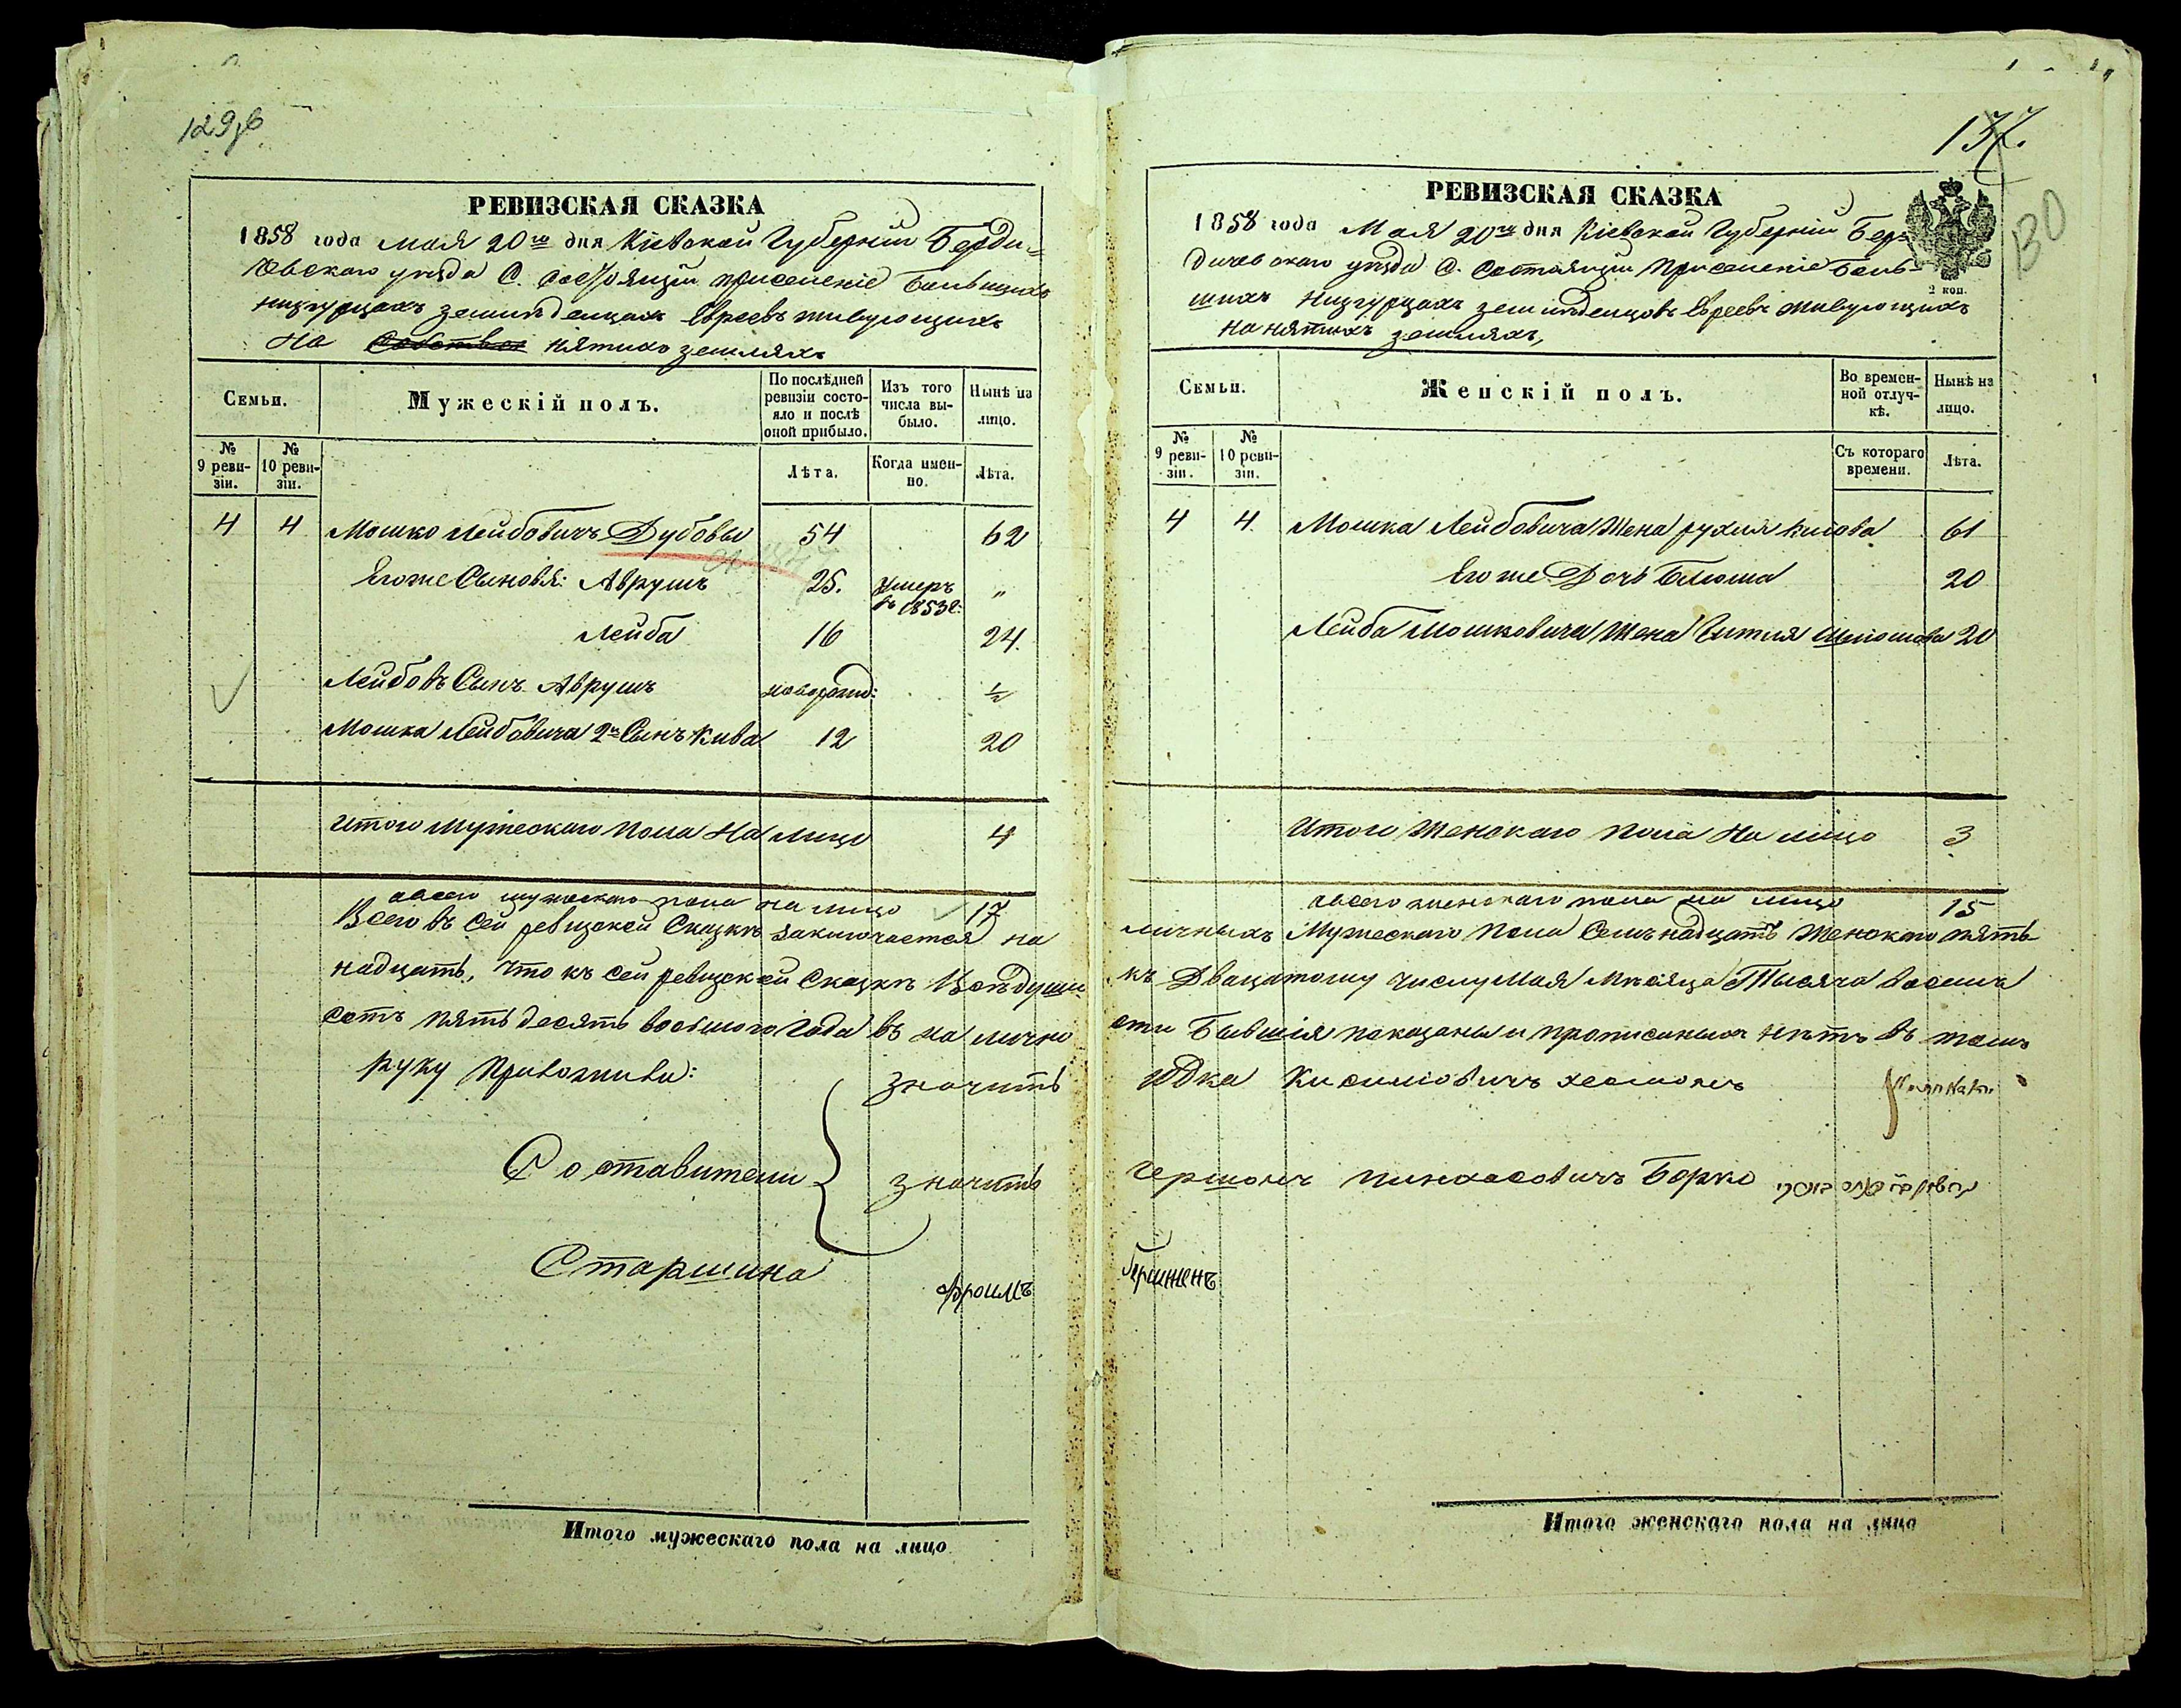 129об
РЕВИЗСКАЯ СКАЗКА
1858 года мая 20го дня Кіевской Губерніи Берди=
чевскаго уѣзда С. состоящій приселеніе Большихъ
низгурцахъ земледелцахъ Евреевъ живующихъ
на нятихъ земляхъ
Семьи.
Мужескій полъ.
По послѣдней ревизіи состояло и послѣ оной прибыло.
Изъ того числа выбыло.
Нынѣ на лицо.
№ 9 ревизіи.
№ 10 ревизіи.
Лѣта.
Когда именно.
Лѣта.
4 4 Мошко Лейбовичъ Дубовы 54 62
Егоже Сыновья: Аврумъ 25. умеръ въ 1853г: "
Лейба 16 24.
Лейбовъ Сынъ Аврумъ новорожд: ½
Мошка Лейбовича 2й Сынъ Кива 12 20
Итого мужескаго пола на лицо 4
авсего мужескаго пола на лицо 17
Всего въ сей ревизской Сказкѣ заключается на
надцать, что къ сей ревизской Сказкѣ Всѣ души
сотъ пятьдесять восьмого года въ на лично
руку приложили:
значитъ
Составители
значитъ
Старшина
Фроимъ
Итого мужескаго пола на лицо
137.
130
РЕВИЗСКАЯ СКАЗКА
2 коп.
1858 года Мая 20го дня Кіевской Губерніи Бер=
дичевскаго уѣзда С. Состоящій Приселеніе Боль-
шихъ Низгурцахъ земледелцовъ Евреевъ живующихъ
на нятихъ земляхъ,
Семьи.
Женскій полъ.
Во временной отлучкѣ.
Нынѣ на лицо.
№ 9 ревизіи.
№ 10 ревизіи.
Съ котораго времени.
Лѣта.
4 4. Мошка Лейбовича Жена рухля Кисова 61
Егоже Дочь Блюма 20
Лейба Мошковича Жена Гитля 20
Итого Женскаго пола На лицо 3
авсего женскаго пола на лицо 15
личныхъ Мужескаго Пола Семьнадцать Женскаго пять
къ Двацатому числу Мая Мѣсяца Тысяча восемь
сти Бывшія показаны и прописныхъ нѣтъ въ томъ
Юдка
Гершонъ Пинхасовичъ Борко
Гершженъ
Итого женскаго пола на лицо